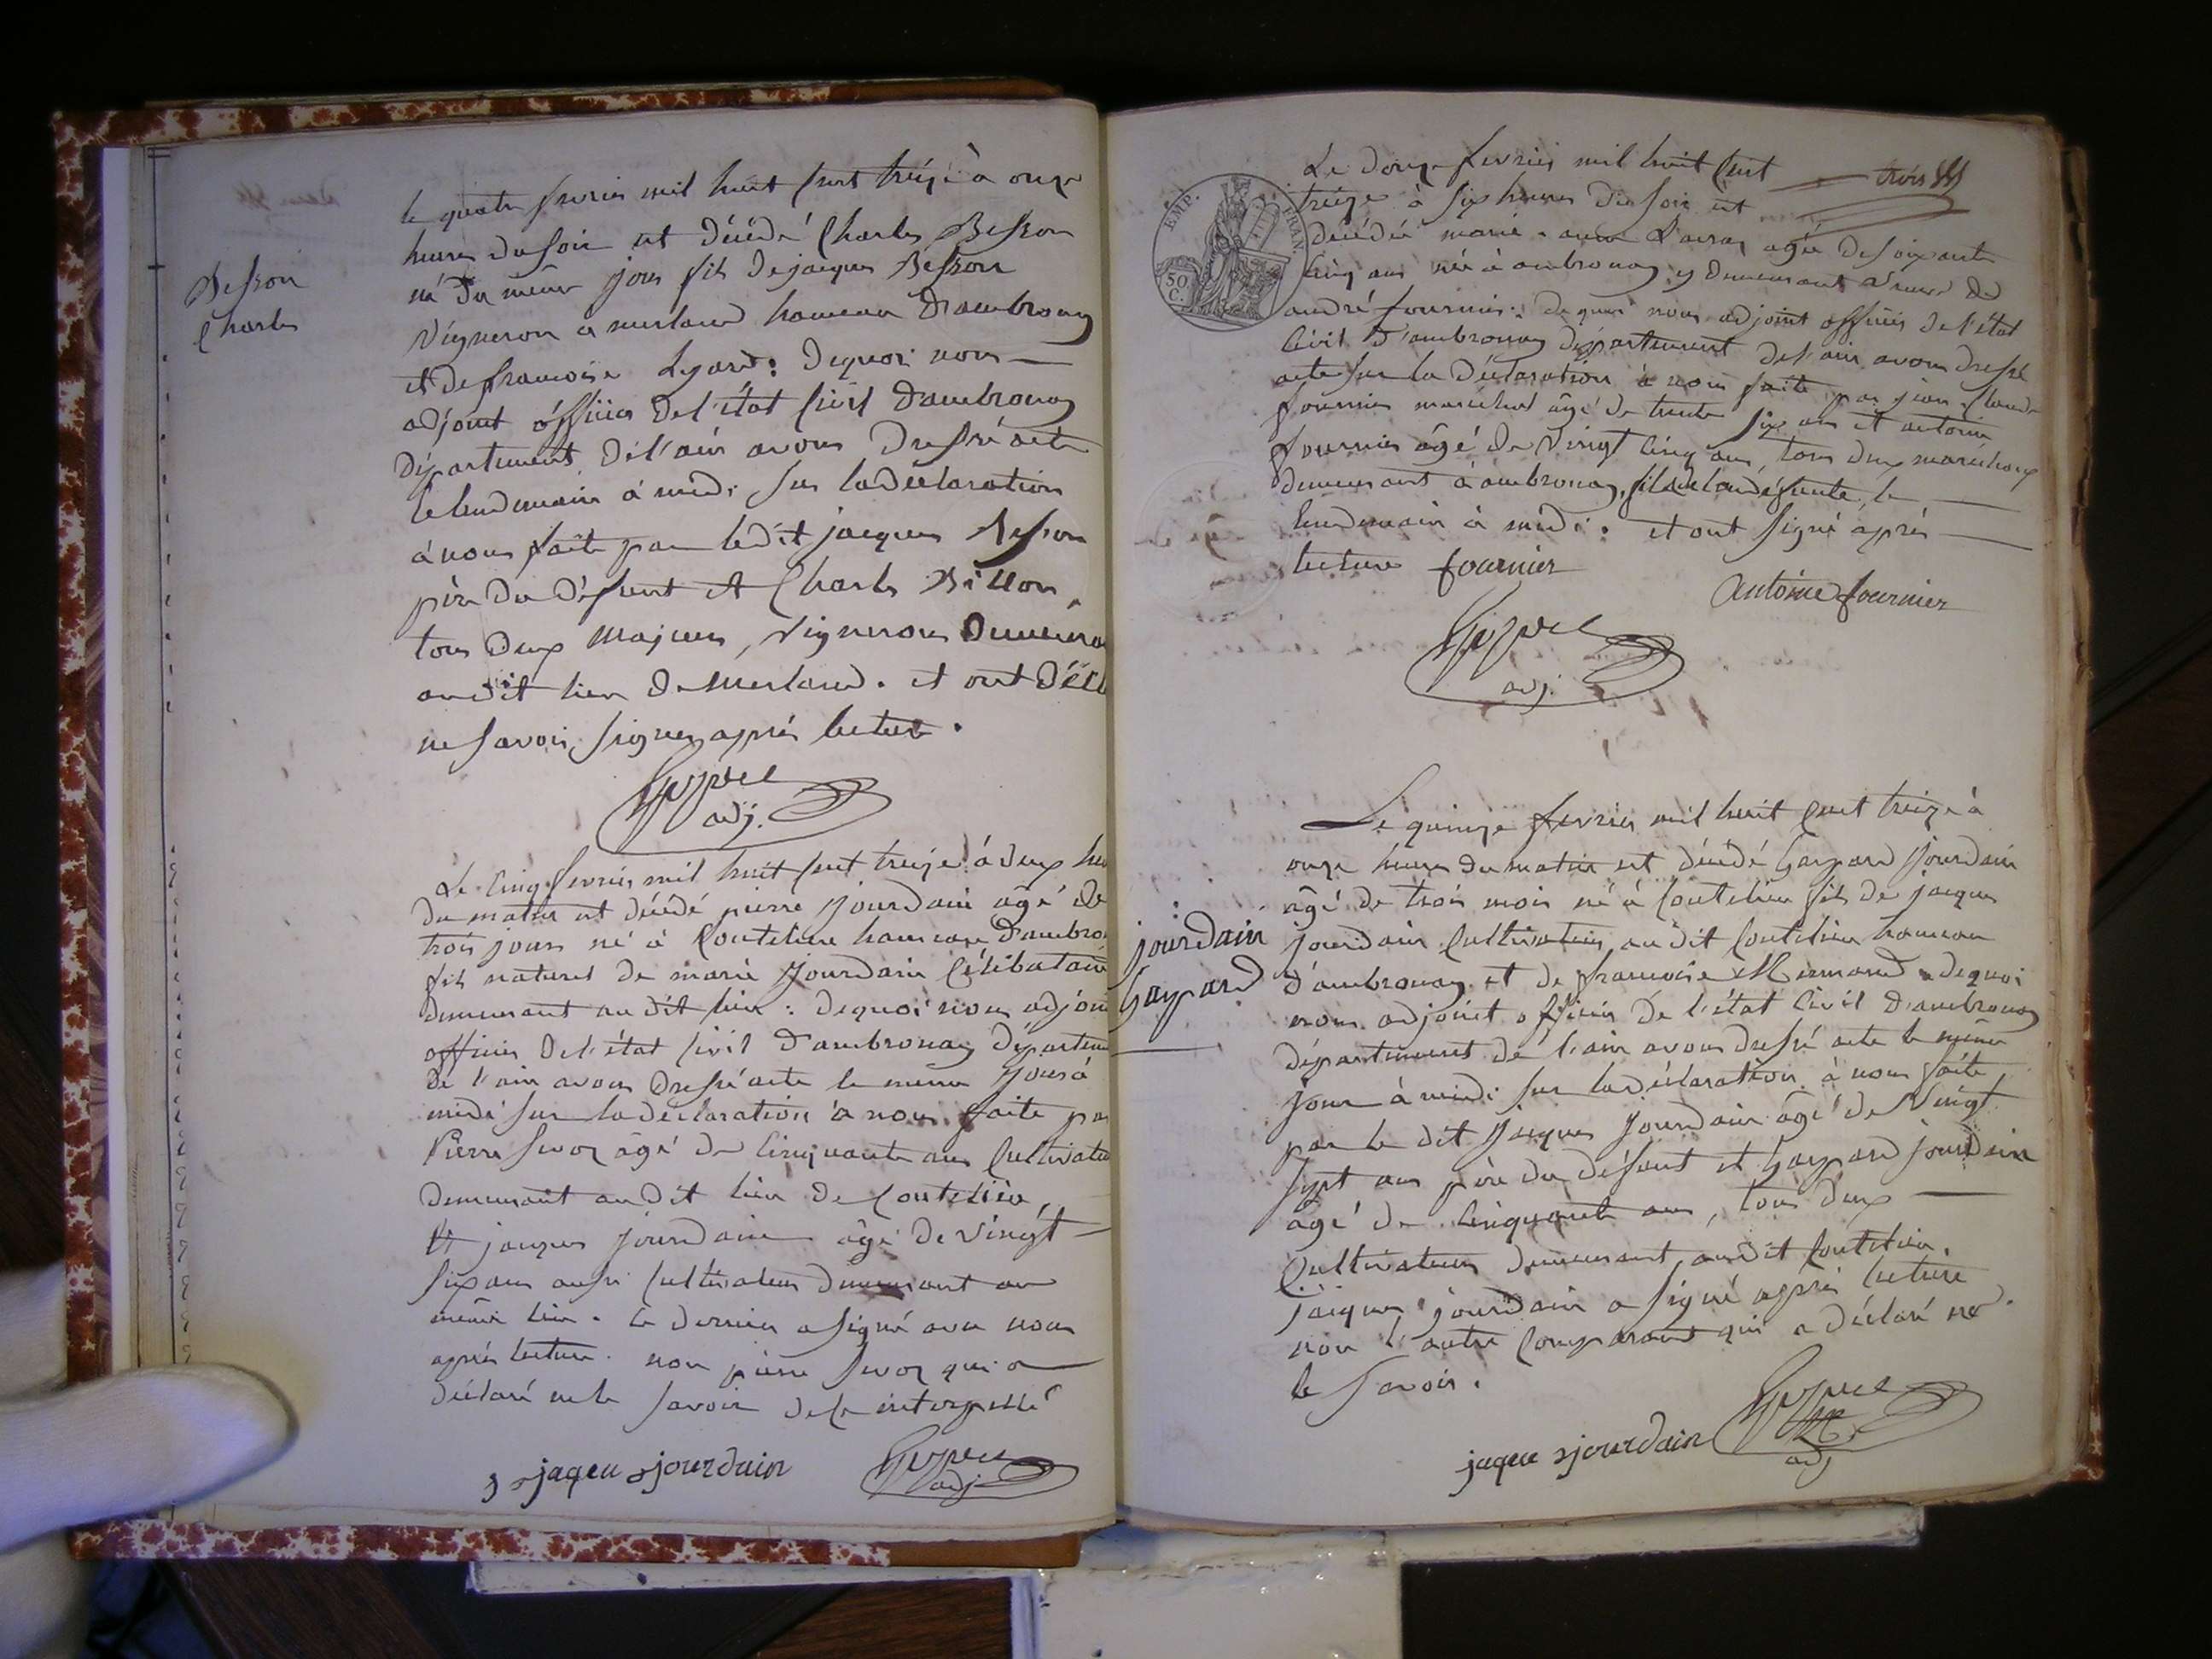 Besson
Charles
le quatre fevrier mil huit cent treize à onze
heures du soir est décédé Charles Besson
né du même jour fils de jacques Besson
vigneron a merland hameau d'ambronay
et de francoise Lyard : dequoi nous
adjoint officier de l'état civil d'ambronay
département de l'ain avons dressé acte
le lendemain à midi sur la déclaration
à nous faite par ledit jacques Besson
père du défunt et Charles Billon,
tous deux majeurs, vignerons demeura
audit lieu de merland. et ont décl
ne savoir signer après lecture.
adj.
Le cinq fevrier mil huit cent treize à deux heu
du matin est décédé pierre jourdain âgé de
trois jours né à Coutelieu hameau d'ambro
fils naturel de marie jourdain célibataire
demeurant au dit lieu : dequoi nous adjoin
officier de l'état civil d'ambronay départem
de l'ain avons dressé acte le même jour à
midi sur la déclaration à nous faite pa
Pierre Sevoz âgé de cinquante ans cultivateu
demeurant au dit lieu de Coutelieu,
et jacques jourdain âgé de vingt
six ans aussi cultivateur demeurant au
même lieu. le dernier a signé avec nous
après lecture. non pierre Sevoz qui a
déclaré ne le savoir de ce interpellé
jaque jourdain
adj.
trois
Le douze fevrier mil huit cent
treize à six heures du soir est
décédée marie. anne agée de soixante
cinq ans née à ambronay y demeurant veuve de
andré fournier : de quoi nous adjoint officier de l'état
civil d'ambronay département de l'ain avons dressé
acte sur la déclaration à nous faite par jean. claude
fournier marechal âgé de trente six ans et antoine
fournier âgé de vingt cinq ans, tous deux marechaux
demeurant à ambronay, fils de la défunte, le
lendemain à midi : et ont signé après
lecture fournier
antoine fournier
adj.
EMP. FRAN.
50 C.
jourdain
Gaspard
Le quinze fevrier mil huit cent treize à
onze heures du matin est décédé Gaspard jourdain
âgé de trois mois né à Coutelieu fils de jacques
jourdain cultivateur au dit Coutelieu hameau
d'ambronay et de francoise Mermand dequoi
nous adjoint officier de l'état civil d'ambronay
département de l'ain avons dressé acte le même
jour à midi sur la déclaration à nous faite
par le dit jacques jourdain âgé de vingt
sept ans père du défunt et Gaspard jourdain
âgé de cinquante ans, tous deux
cultivateurs demeurant audit Coutelieu.
jacques jourdain a signé après lecture
non l'autre comparant qui a déclaré ne
le savoir.
jaque jourdain
adj